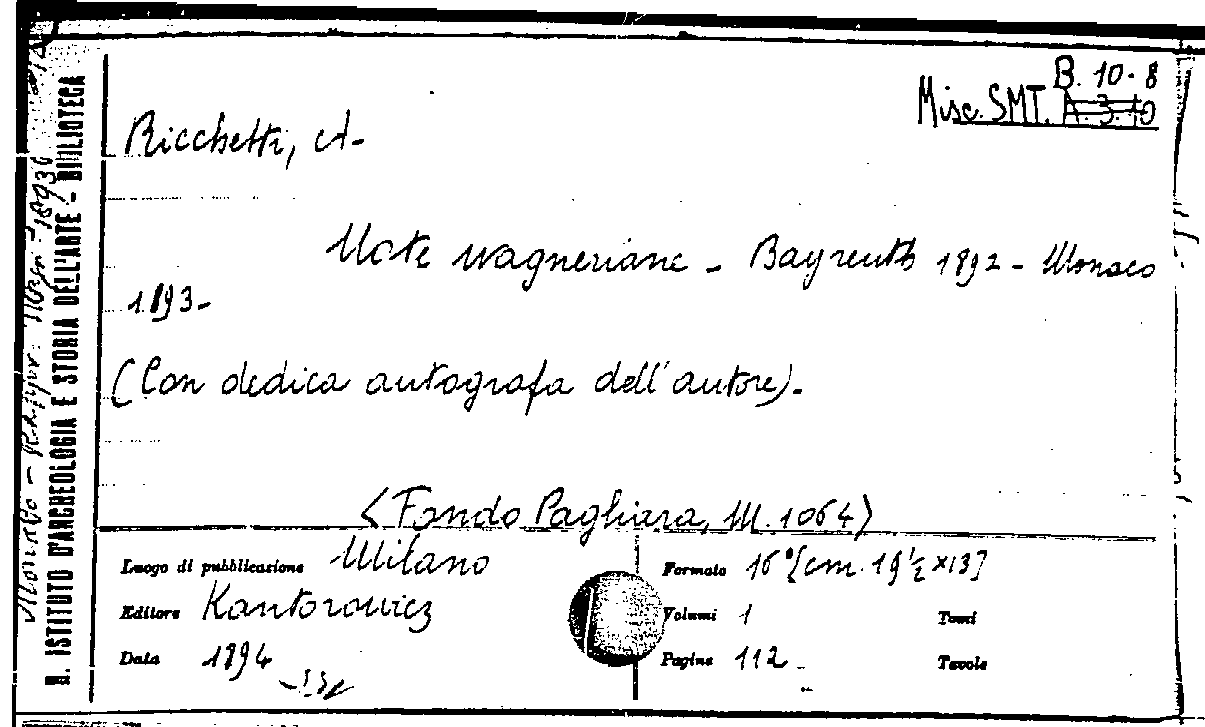 B. 10-8
Misc. SMT. A. 3. 10
Ricchetti, A-
Note wagneriane - Bayreuth 1892 - Monaco
1893-
(Con dedica autografa dell'autore).
<Fondo Pagliara, M. 1064>
Luogo di pubblicazione Milano
Editore Kantorowicz
Data 1894
Formato 16° [cm. 19½ x13]
Volumi 1 Tomi
Pagine 112 Tavole
R. ISTITUTO D'ARCHEOLOGIA E STORIA DELL'ARTE - BIBLIOTECA